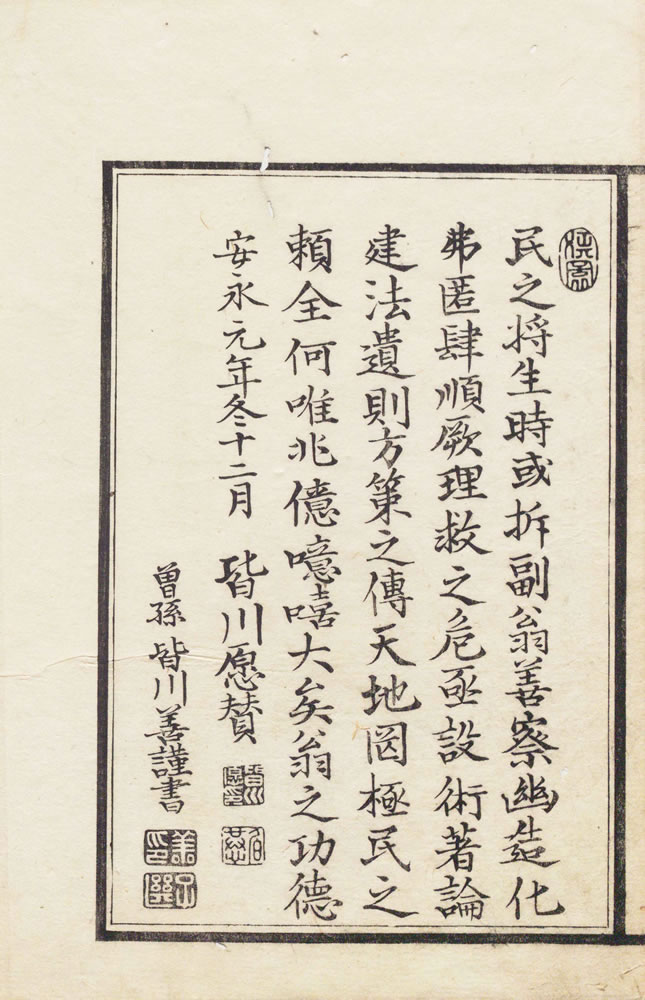 民之将生時或拆副翁善察幽造化
弗匿肆順厥理救之危亟設術著論
建法遺則方策之傳天地罔極民之
頼全何唯兆億噫嘻大矣翁之功德
安永元年冬十二月 皆川愿賛
曽孫 皆川善謹書